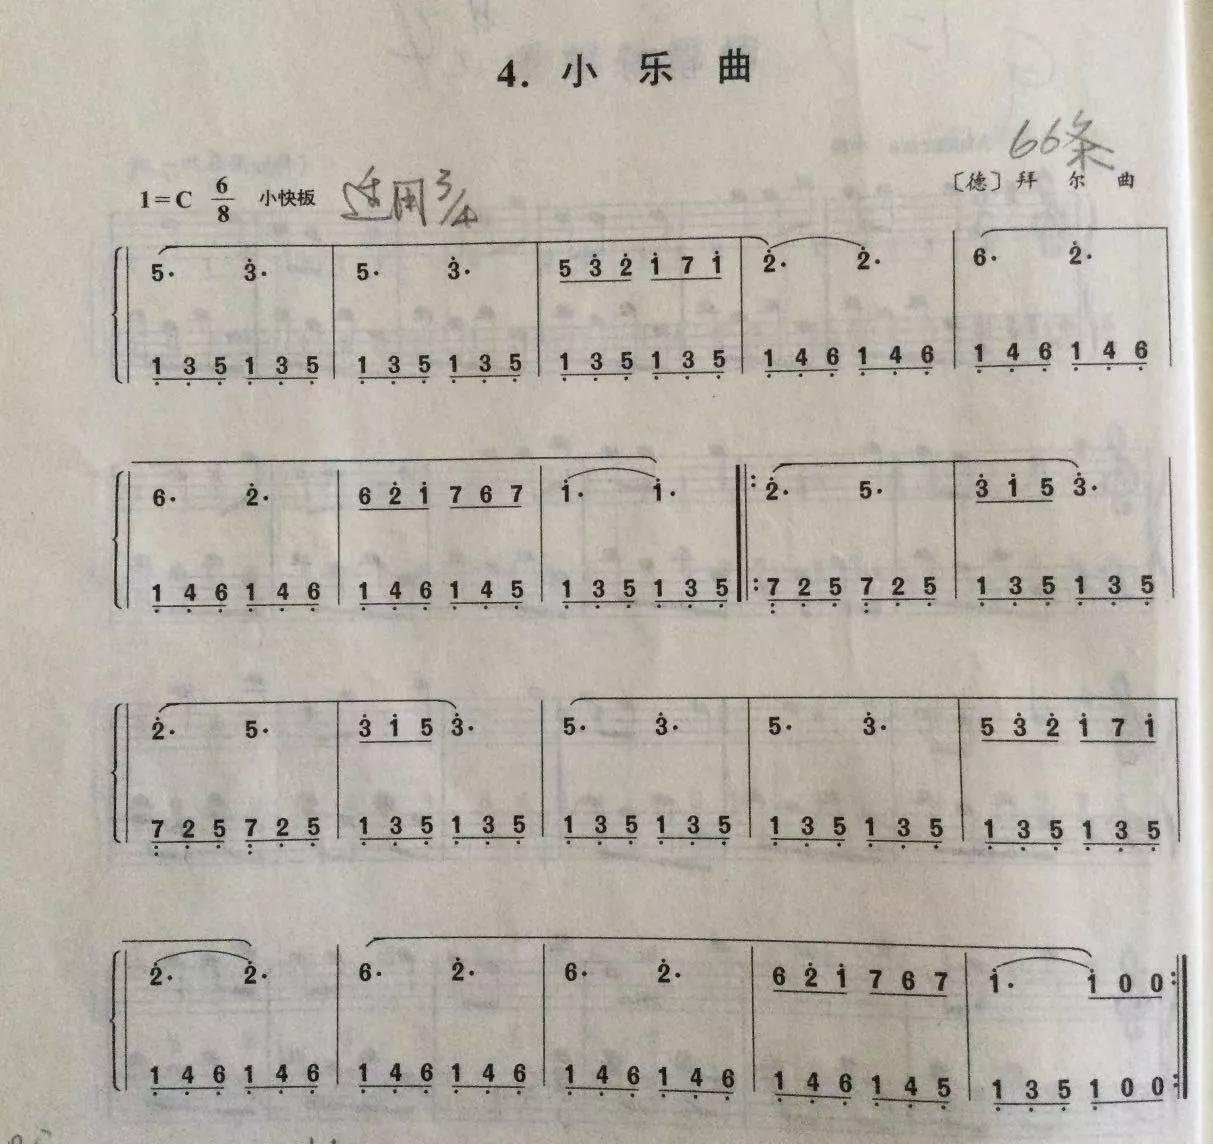 4. 小 乐 曲
66条
1=C 6/8 小快板 适用3/4 〔德〕拜 尔 曲
5· 3̇· | 5· 3̇· | 5 3̇ 2̇ 1̇ 7 1̇ | 2̇· 2̇· | 6· 2̇· |
1̣ 3̣ 5̣ 1̣ 3̣ 5̣ | 1̣ 3̣ 5̣ 1̣ 3̣ 5̣ | 1̣ 3̣ 5̣ 1̣ 3̣ 5̣ | 1̣ 4̣ 6̣ 1̣ 4̣ 6̣ | 1̣ 4̣ 6̣ 1̣ 4̣ 6̣ |
6· 2̇· | 6 2̇ 1̇ 7 6 7 | 1̇· 1̇· ‖: 2̇· 5· | 3̇ 1̇ 5 3̇· |
1̣ 4̣ 6̣ 1̣ 4̣ 6̣ | 1̣ 4̣ 6̣ 1̣ 4̣ 5̣ | 1̣ 3̣ 5̣ 1̣ 3̣ 5̣ ‖: 7̤ 2̣ 5̣ 7̤ 2̣ 5̣ | 1̣ 3̣ 5̣ 1̣ 3̣ 5̣ |
2̇· 5· | 3̇ 1̇ 5 3̇· | 5· 3̇· | 5· 3̇· | 5 3̇ 2̇ 1̇ 7 1̇ |
7̤ 2̣ 5̣ 7̤ 2̣ 5̣ | 1̣ 3̣ 5̣ 1̣ 3̣ 5̣ | 1̣ 3̣ 5̣ 1̣ 3̣ 5̣ | 1̣ 3̣ 5̣ 1̣ 3̣ 5̣ | 1̣ 3̣ 5̣ 1̣ 3̣ 5̣ |
2̇· 2̇· | 6· 2̇· | 6· 2̇· | 6 2̇ 1̇ 7 6 7 | 1̇· 1̇ 0 0 :‖
1̣ 4̣ 6̣ 1̣ 4̣ 6̣ | 1̣ 4̣ 6̣ 1̣ 4̣ 6̣ | 1̣ 4̣ 6̣ 1̣ 4̣ 6̣ | 1̣ 4̣ 6̣ 1̣ 4̣ 5̣ | 1̣ 3̣ 5̣ 1̣ 0 0 :‖